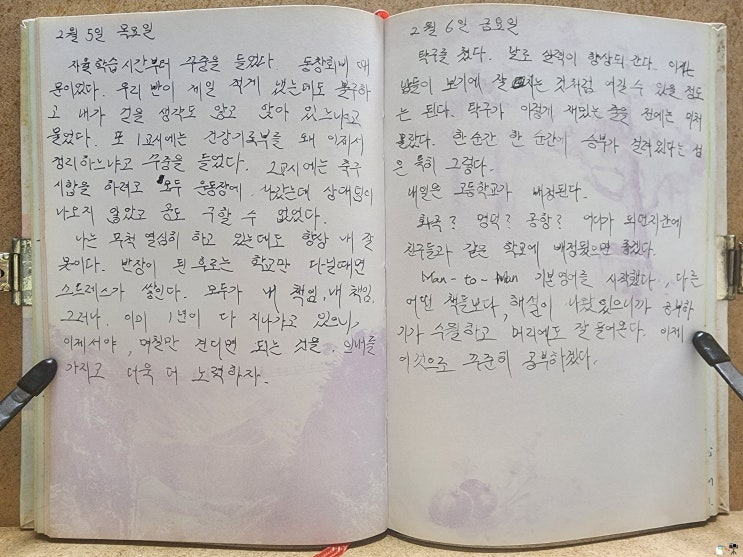 2월 5일 목요일
자율학습 시간부터 꾸중을 들었다. 동창회비 때
문이었다. 우리 반이 제일 적게 냈는데도 불구하
고 내가 걷을 생각도 않고 앉아 있느냐고
물었다. 또 1교시에는 건강기록부를 왜 이제서
정리하느냐고 꾸중을 들었다. 2교시에는 축구
시합을 하려고 모두 운동장에 나갔는데 상대팀이
나오지 않았고 공도 구할 수 없었다.
나는 무척 열심히 하고 있는데도 항상 내 잘
못이다. 반장이 된 후로는 학교만 다닐때면
스트레스가 쌓인다. 모두가 내 책임, 내 책임,
그러나 이미 1년이 다 지나가고 있으니,
이제서야, 며칠만 견디면 되는 것을. 인내를
가지고 더욱 더 노력하자.
2월 6일 금요일
탁구를 쳤다. 날로 실력이 향상되 간다. 이제는
남들이 보기에 잘 치는 것처럼 여길 수 있을 정도
는 된다. 탁구가 이렇게 재밌는 줄을 전에는 미처
몰랐다. 한 순간 한 순간에 승부가 걸려있다는 점
은 특히 그렇다.
내일은 고등학교가 배정된다.
화곡? 명덕? 공항? 어디가 되던지간에
친구들과 같은 학교에 배정됐으면 좋겠다.
Man-to-Man 기본영어를 시작했다. 다른
어떤 책들보다 해설이 나와있으니까 공부하
기가 수월하고 머리에도 잘 들어온다. 이제
이것으로 꾸준히 공부하겠다.